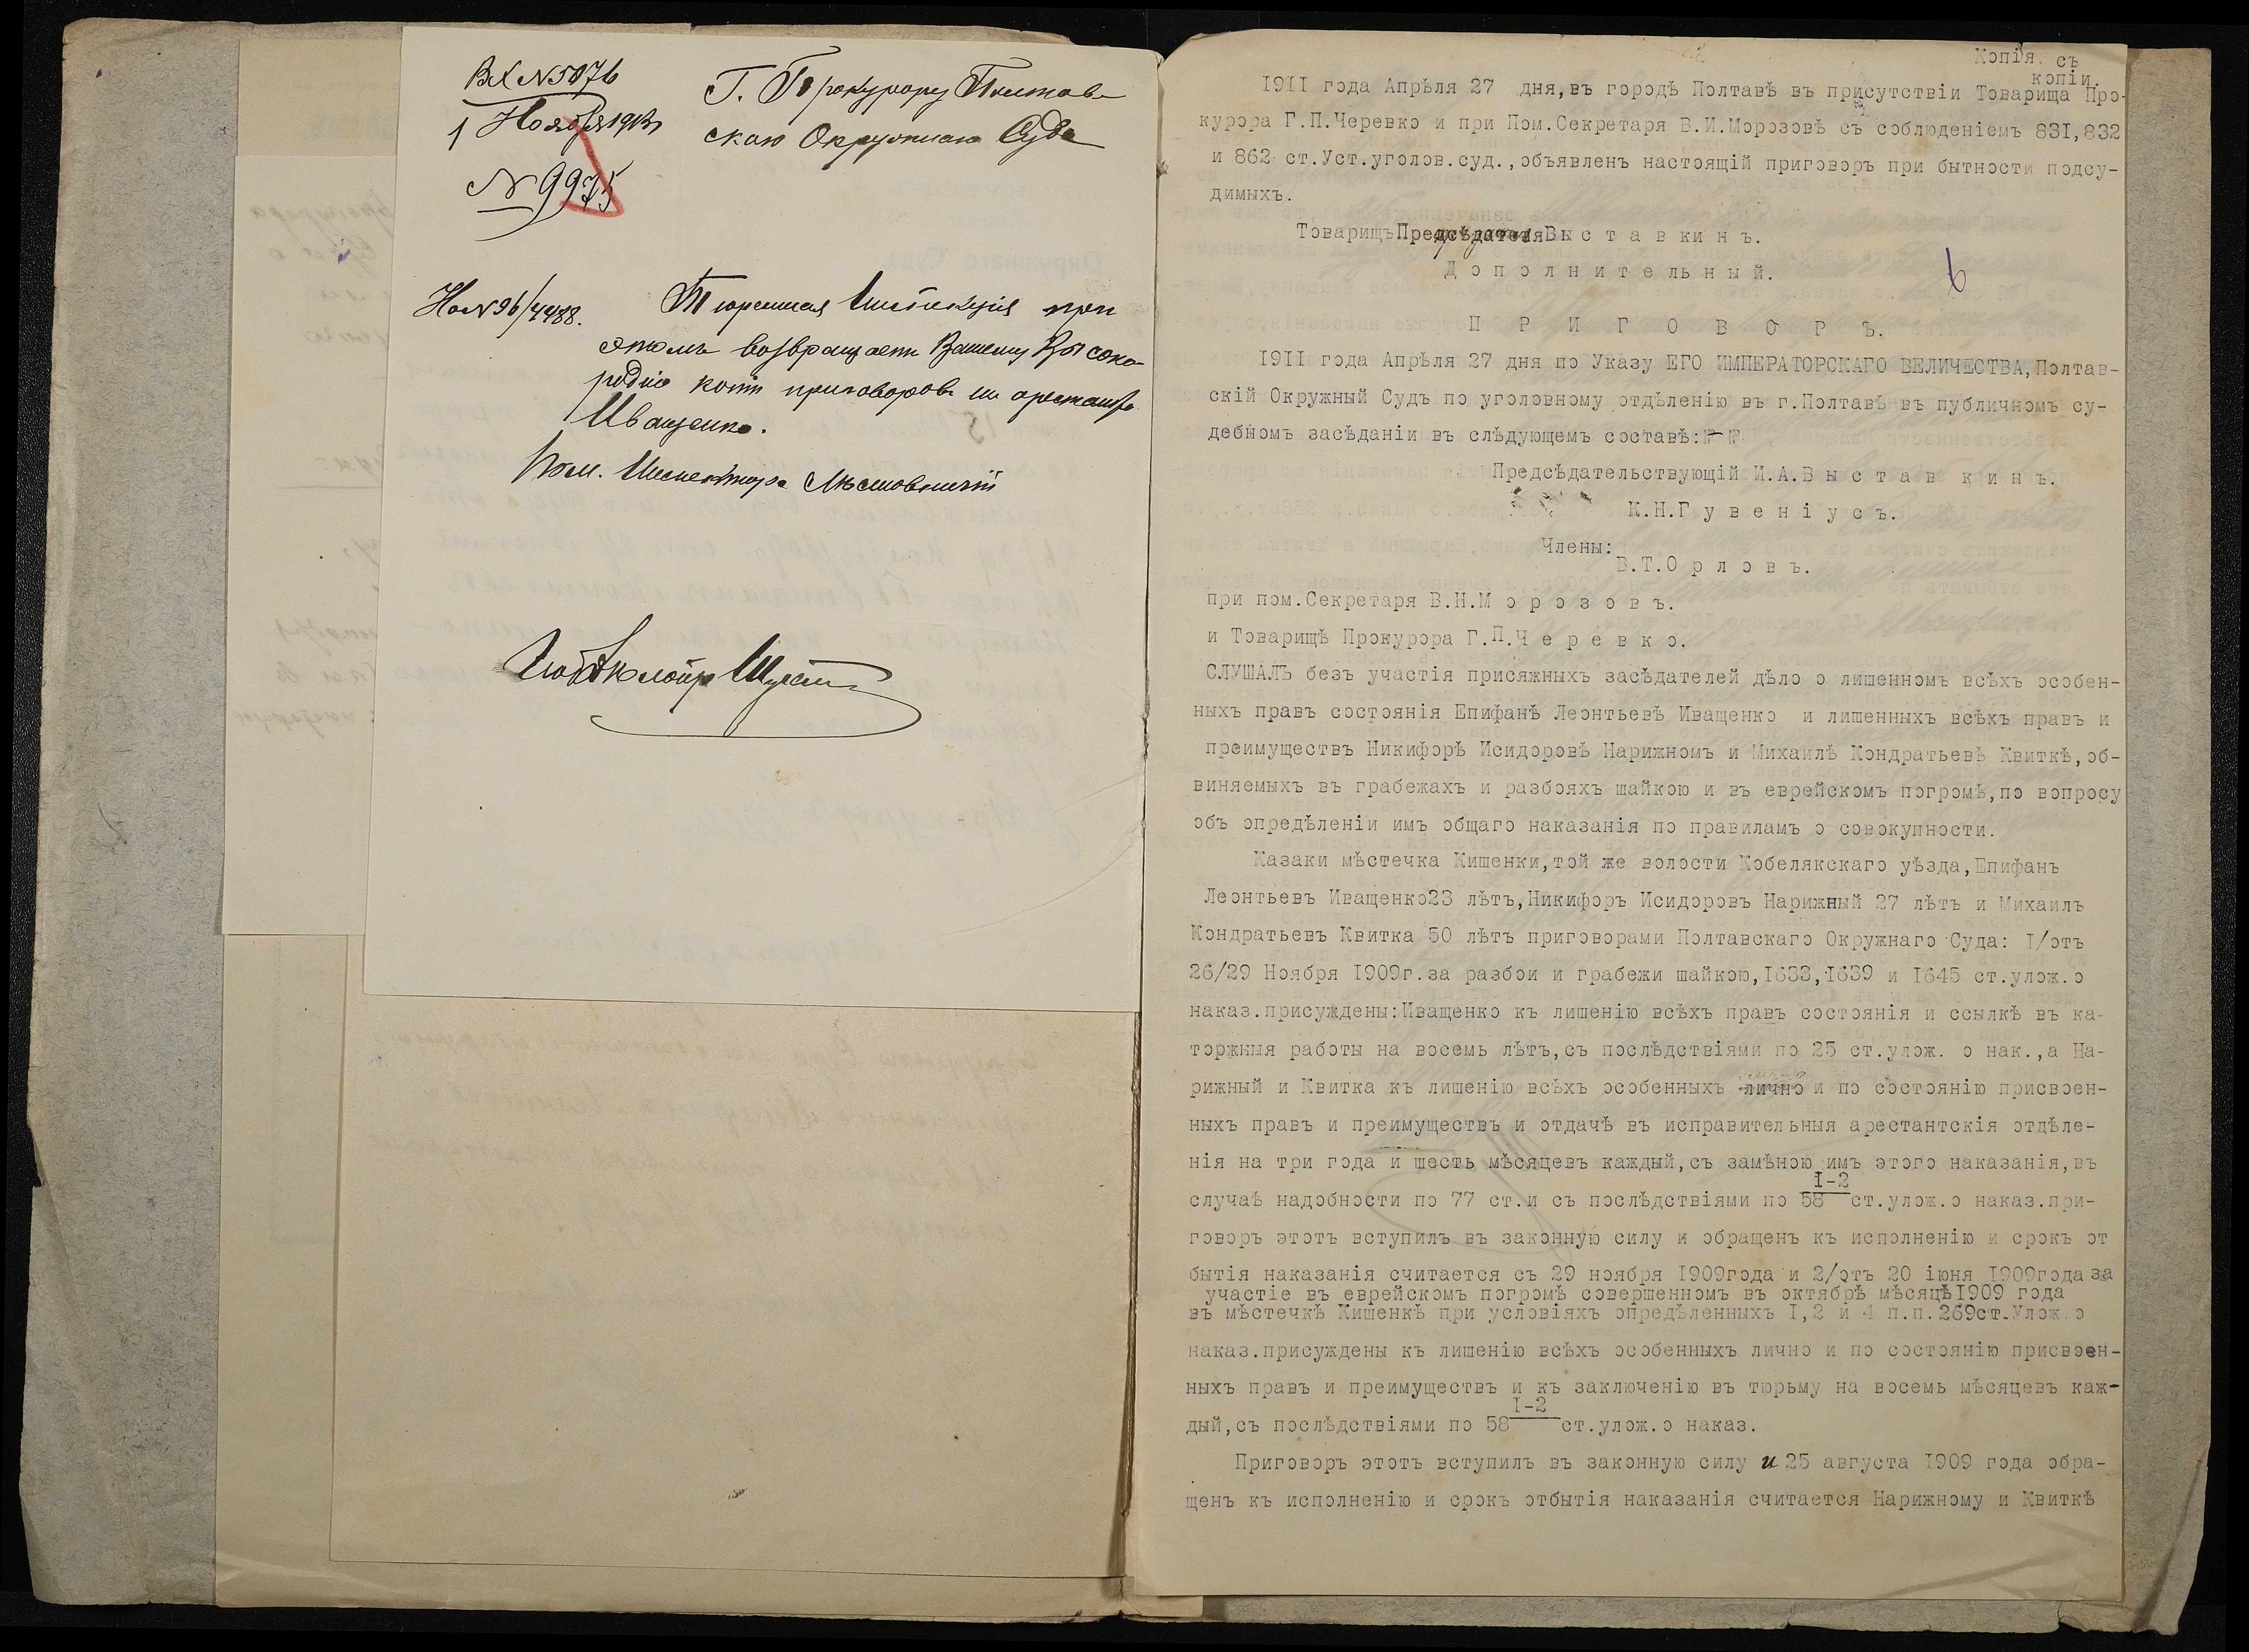 Вх N 5076
1 Ноября 1912
N 9975
Г. Прокурору Полтав-
скаго Окружнаго Суда
На N 96/4488.
Тюремная Инспекція при
этомъ возвращаетъ Вашему Высоко-
родію копіи приговоровъ на арестанта
Иващенко.
Пом. Инспектора
Копія съ
копіи.
1911 года Апрѣля 27 дня,въ городѣ Полтавѣ въ присутствіи Товарища Про-
курора Г.П.Черевко и при Пом.Секретаря В.И.Морозовѣ съ соблюденіемъ 831,832
и 862 ст.Уст.уголов.суд.,объявленъ настоящій приговоръ при бытности подсу-
димыхъ.
ТоварищъПредсѣдателяВыставкинъ.
Дополнительный.
6
ПРИГОВОРЪ.
1911 года Апрѣля 27 дня по Указу ЕГО ИМПЕРАТОРСКАГО ВЕЛИЧЕСТВА,Полтав-
скій Окружный Судъ по уголовному отдѣленію въ г.Полтавѣ въ публичномъ су-
дебномъ засѣданіи въ слѣдующемъ составѣ:
Предсѣдательствующій И.А.Выставкинъ.
К.Н.Гувеніусъ.
Члены:
В.Т.Орловъ.
при пом.Секретаря В.Н.Морозовъ.
и Товарищѣ Прокурора Г.П.Черевко.
СЛУШАЛЪ безъ участія присяжныхъ засѣдателей дѣло о лишенномъ всѣхъ особен-
ныхъ правъ состоянія Епифанѣ Леонтьевѣ Иващенко и лишенныхъ всѣхъ правъ и
преимуществъ Никифорѣ Исидоровѣ Нарижномъ и Михаилѣ Кондратьевѣ Квиткѣ,об-
виняемыхъ въ грабежахъ и разбояхъ шайкою и въ еврейскомъ погромѣ,по вопросу
объ опредѣленіи имъ общаго наказанія по правиламъ о совокупности.
Казаки мѣстечка Кишенки,той же волости Кобелякскаго уѣзда,Епифанъ
Леонтьевъ Иващенко23 лѣтъ,Никифоръ Исидоровъ Нарижный 27 лѣтъ и Михаилъ
Кондратьевъ Квитка 50 лѣтъ приговорами Полтавскаго Окружнаго Суда: I/отъ
26/29 Ноября 1909г.за разбои и грабежи шайкою,1633,1639 и 1645 ст.улож.о
наказ.присуждены:Иващенко къ лишенію всѣхъ правъ состоянія и ссылкѣ въ ка-
торжныя работы на восемь лѣтъ,съ послѣдствіями по 25 ст.улож. о нак.,а На-
рижный и Квитка къ лишенію всѣхъ особенныхъ лично и по состоянію присвоен-
ныхъ правъ и преимуществъ и отдачѣ въ исправительныя арестантскія отдѣле-
нія на три года и шесть мѣсяцевъ каждый,съ замѣною имъ этого наказанія,въ
случаѣ надобности по 77 ст.и съ послѣдствіями по 58 I-2 ст.улож.о наказ.при-
говоръ этотъ вступилъ въ законную силу и обращенъ къ исполненію и срокъ от
бытія наказанія считается съ 29 ноября 1909года и 2/отъ 20 іюня 1909года за
участіе въ еврейскомъ погромѣ совершенномъ въ октябрѣ мѣсяцѣ1909 года
въ мѣстечкѣ Кишенкѣ при условіяхъ опредѣленныхъ I,2 и 4 п.п.269ст.Улож.о
наказ.присуждены къ лишенію всѣхъ особенныхъ лично и по состоянію присвоен-
ныхъ правъ и преимуществъ и къ заключенію въ тюрьму на восемь мѣсяцевъ каж-
дый,съ послѣдствіями по 58 I-2 ст.улож.о наказ.
Приговоръ этотъ вступилъ въ законную силу и 25 августа 1909 года обра-
щенъ къ исполненію и срокъ отбытія наказанія считается Нарижному и Квиткѣ